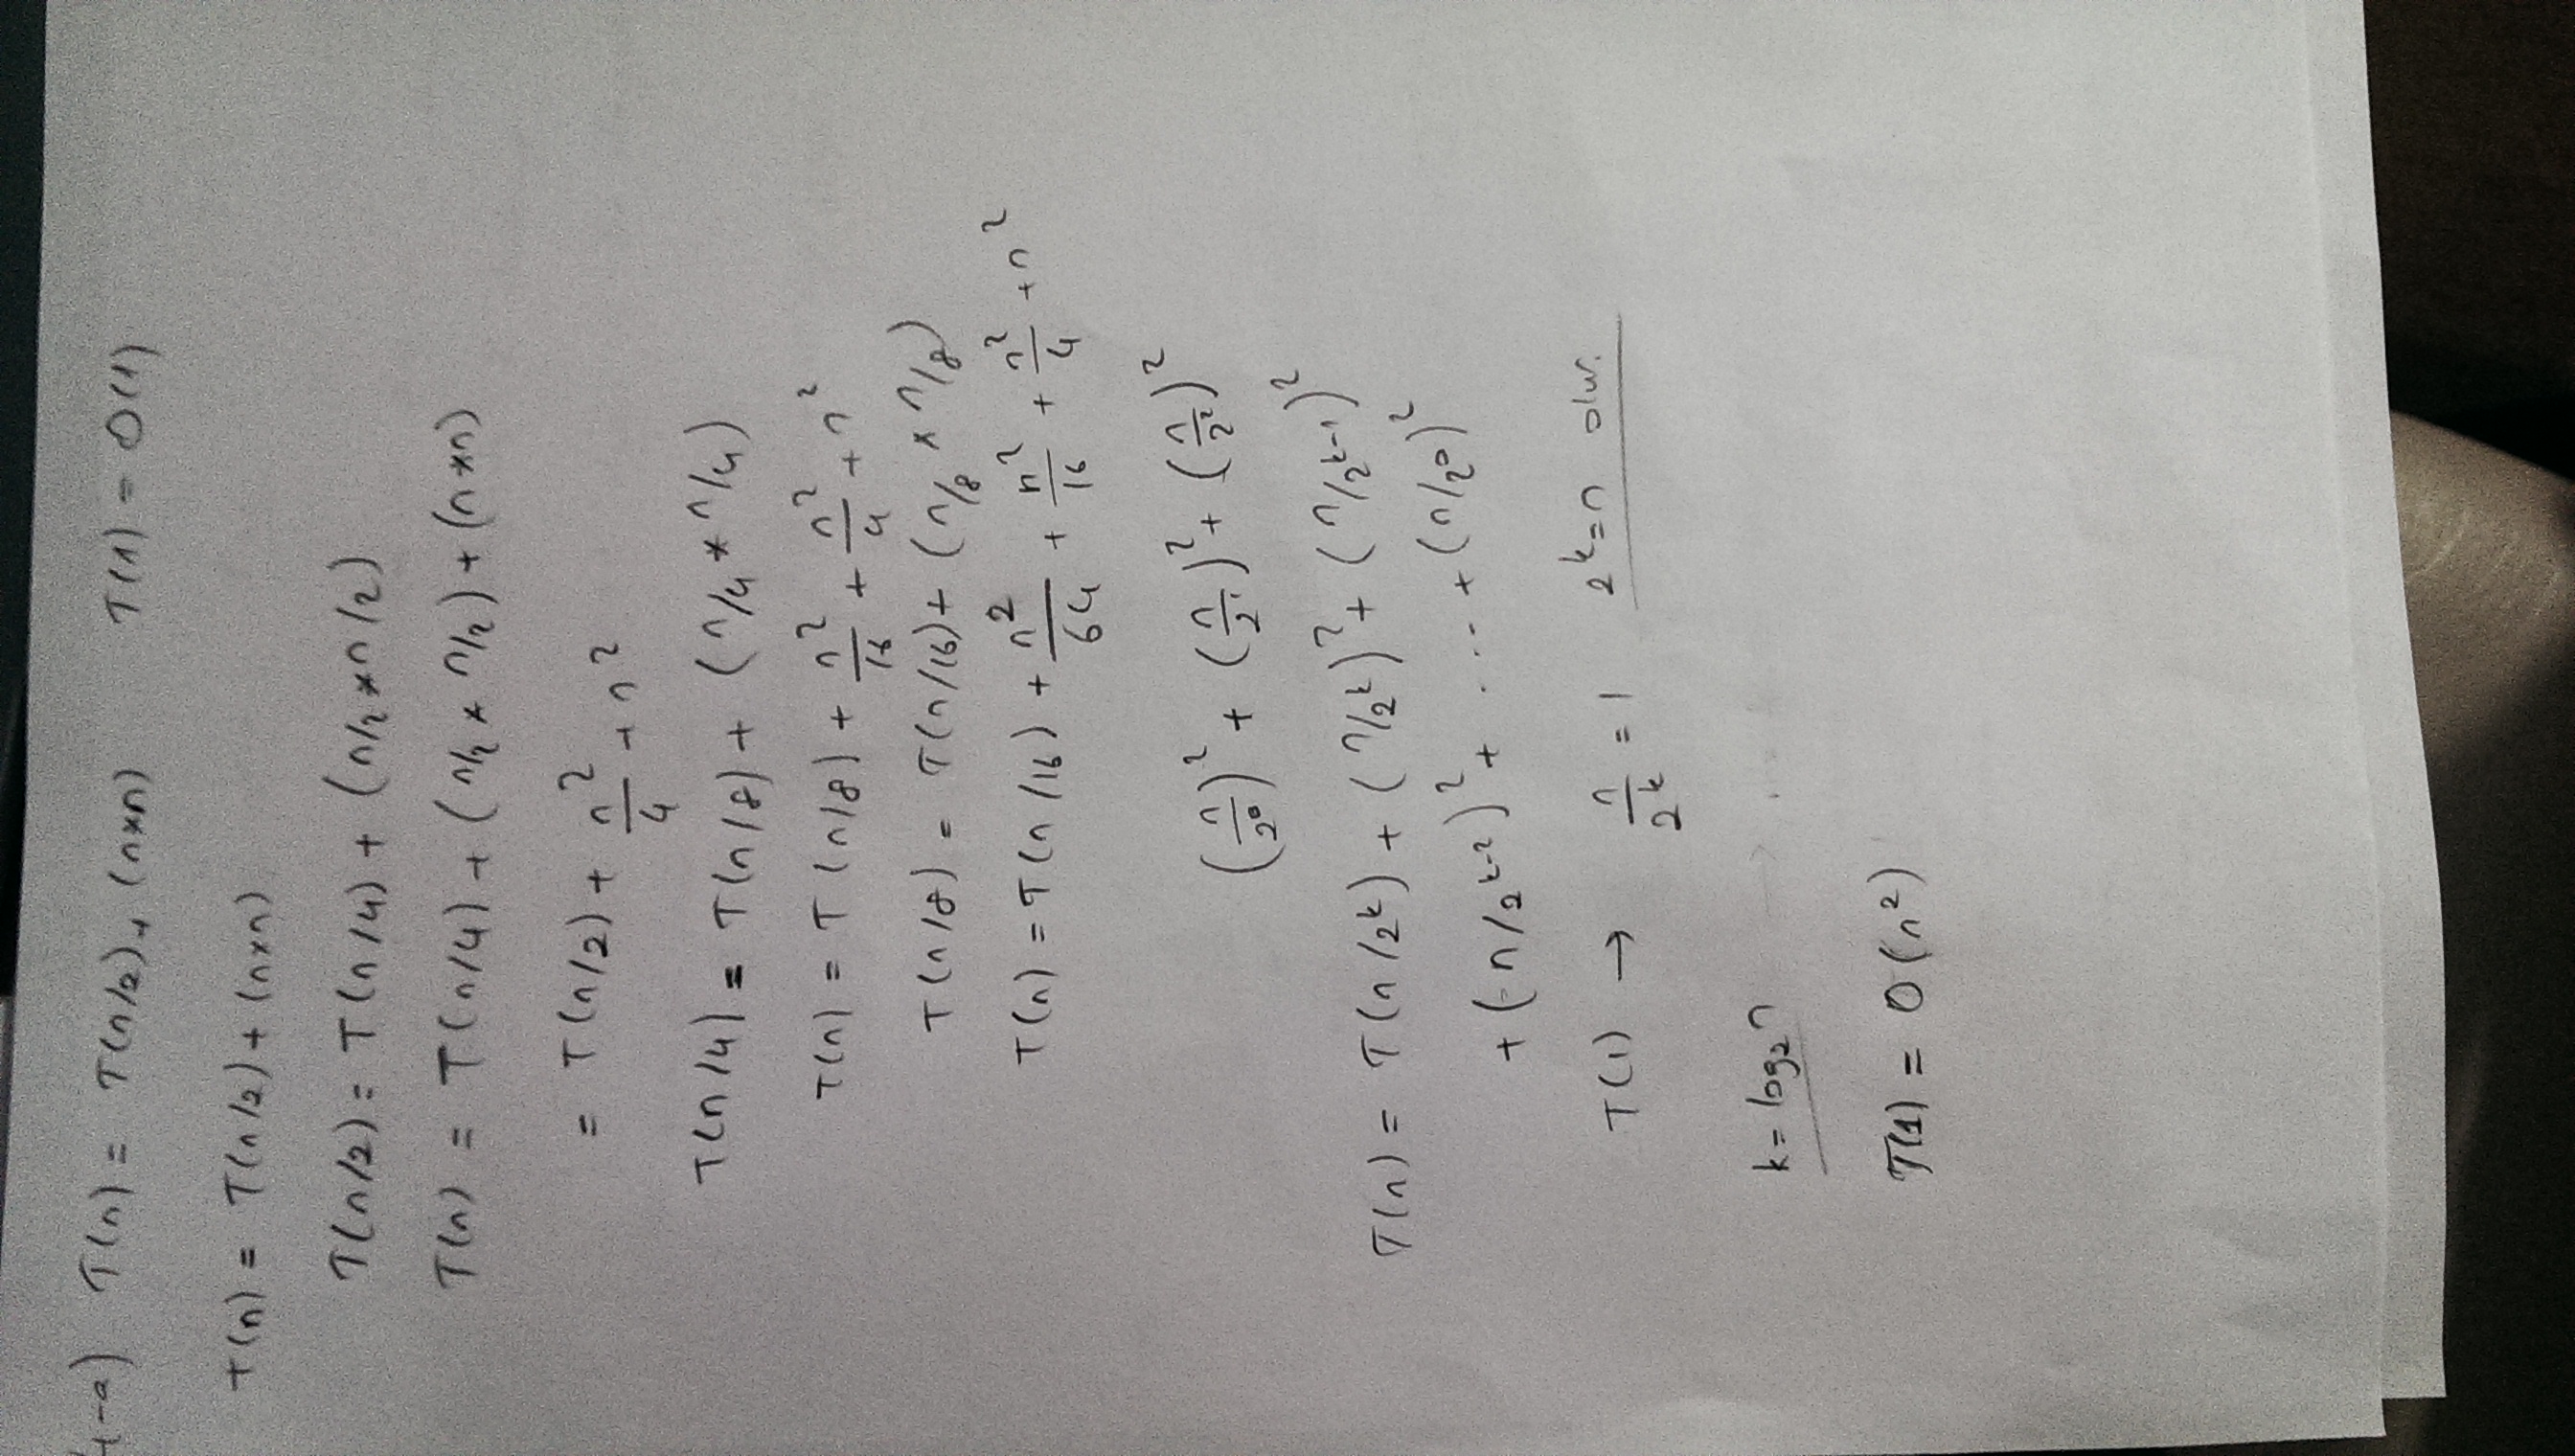 4-a) T(n) = T(n/2) + (n*n) T(1) = O(1)
T(n) = T(n/2) + (n*n)
T(n/2) = T(n/4) + (n/2 * n/2)
T(n) = T(n/4) + (n/2 * n/2) + (n*n)
= T(n/2) + n²/4 + n²
T(n/4) = T(n/8) + (n/4 * n/4)
T(n) = T(n/8) + n²/16 + n²/4 + n²
T(n/8) = T(n/16) + (n/8 * n/8)
T(n) = T(n/16) + n²/64 + n²/16 + n²/4 + n²
(n/2⁰)² + (n/2¹)² + (n/2²)²
T(n) = T(n/2ᵏ) + (n/2ᵏ)² + (n/2ᵏ⁻¹)²
+ (n/2ᵏ⁻²)² + ... + (n/2⁰)²
T(1) → n/2ᵏ = 1 2ᵏ = n olur.
k = log₂n
T(1) = O(n²)